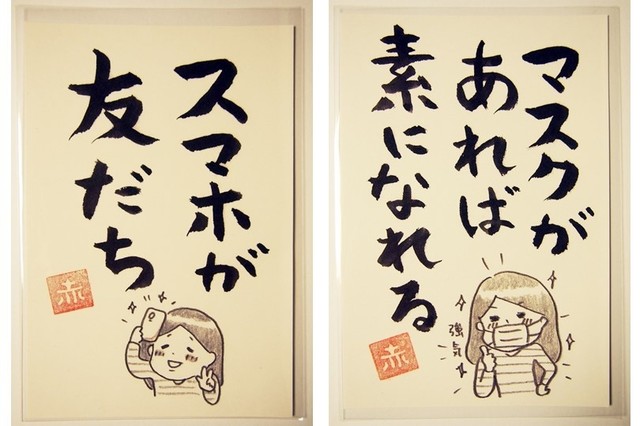 スマホが
友だち
赤
マスクが
あれば
素になれる
強気
赤